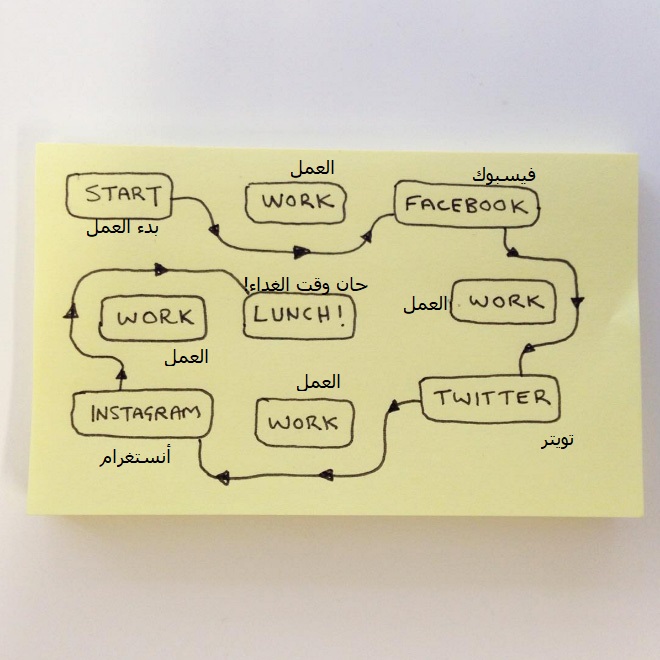 START
بدء العمل
العمل
WORK
فيسبوك
FACEBOOK
العمل
WORK
تويتر
TWITTER
العمل
WORK
INSTAGRAM
أنستغرام
WORK
العمل
حان وقت الغداء!
LUNCH!